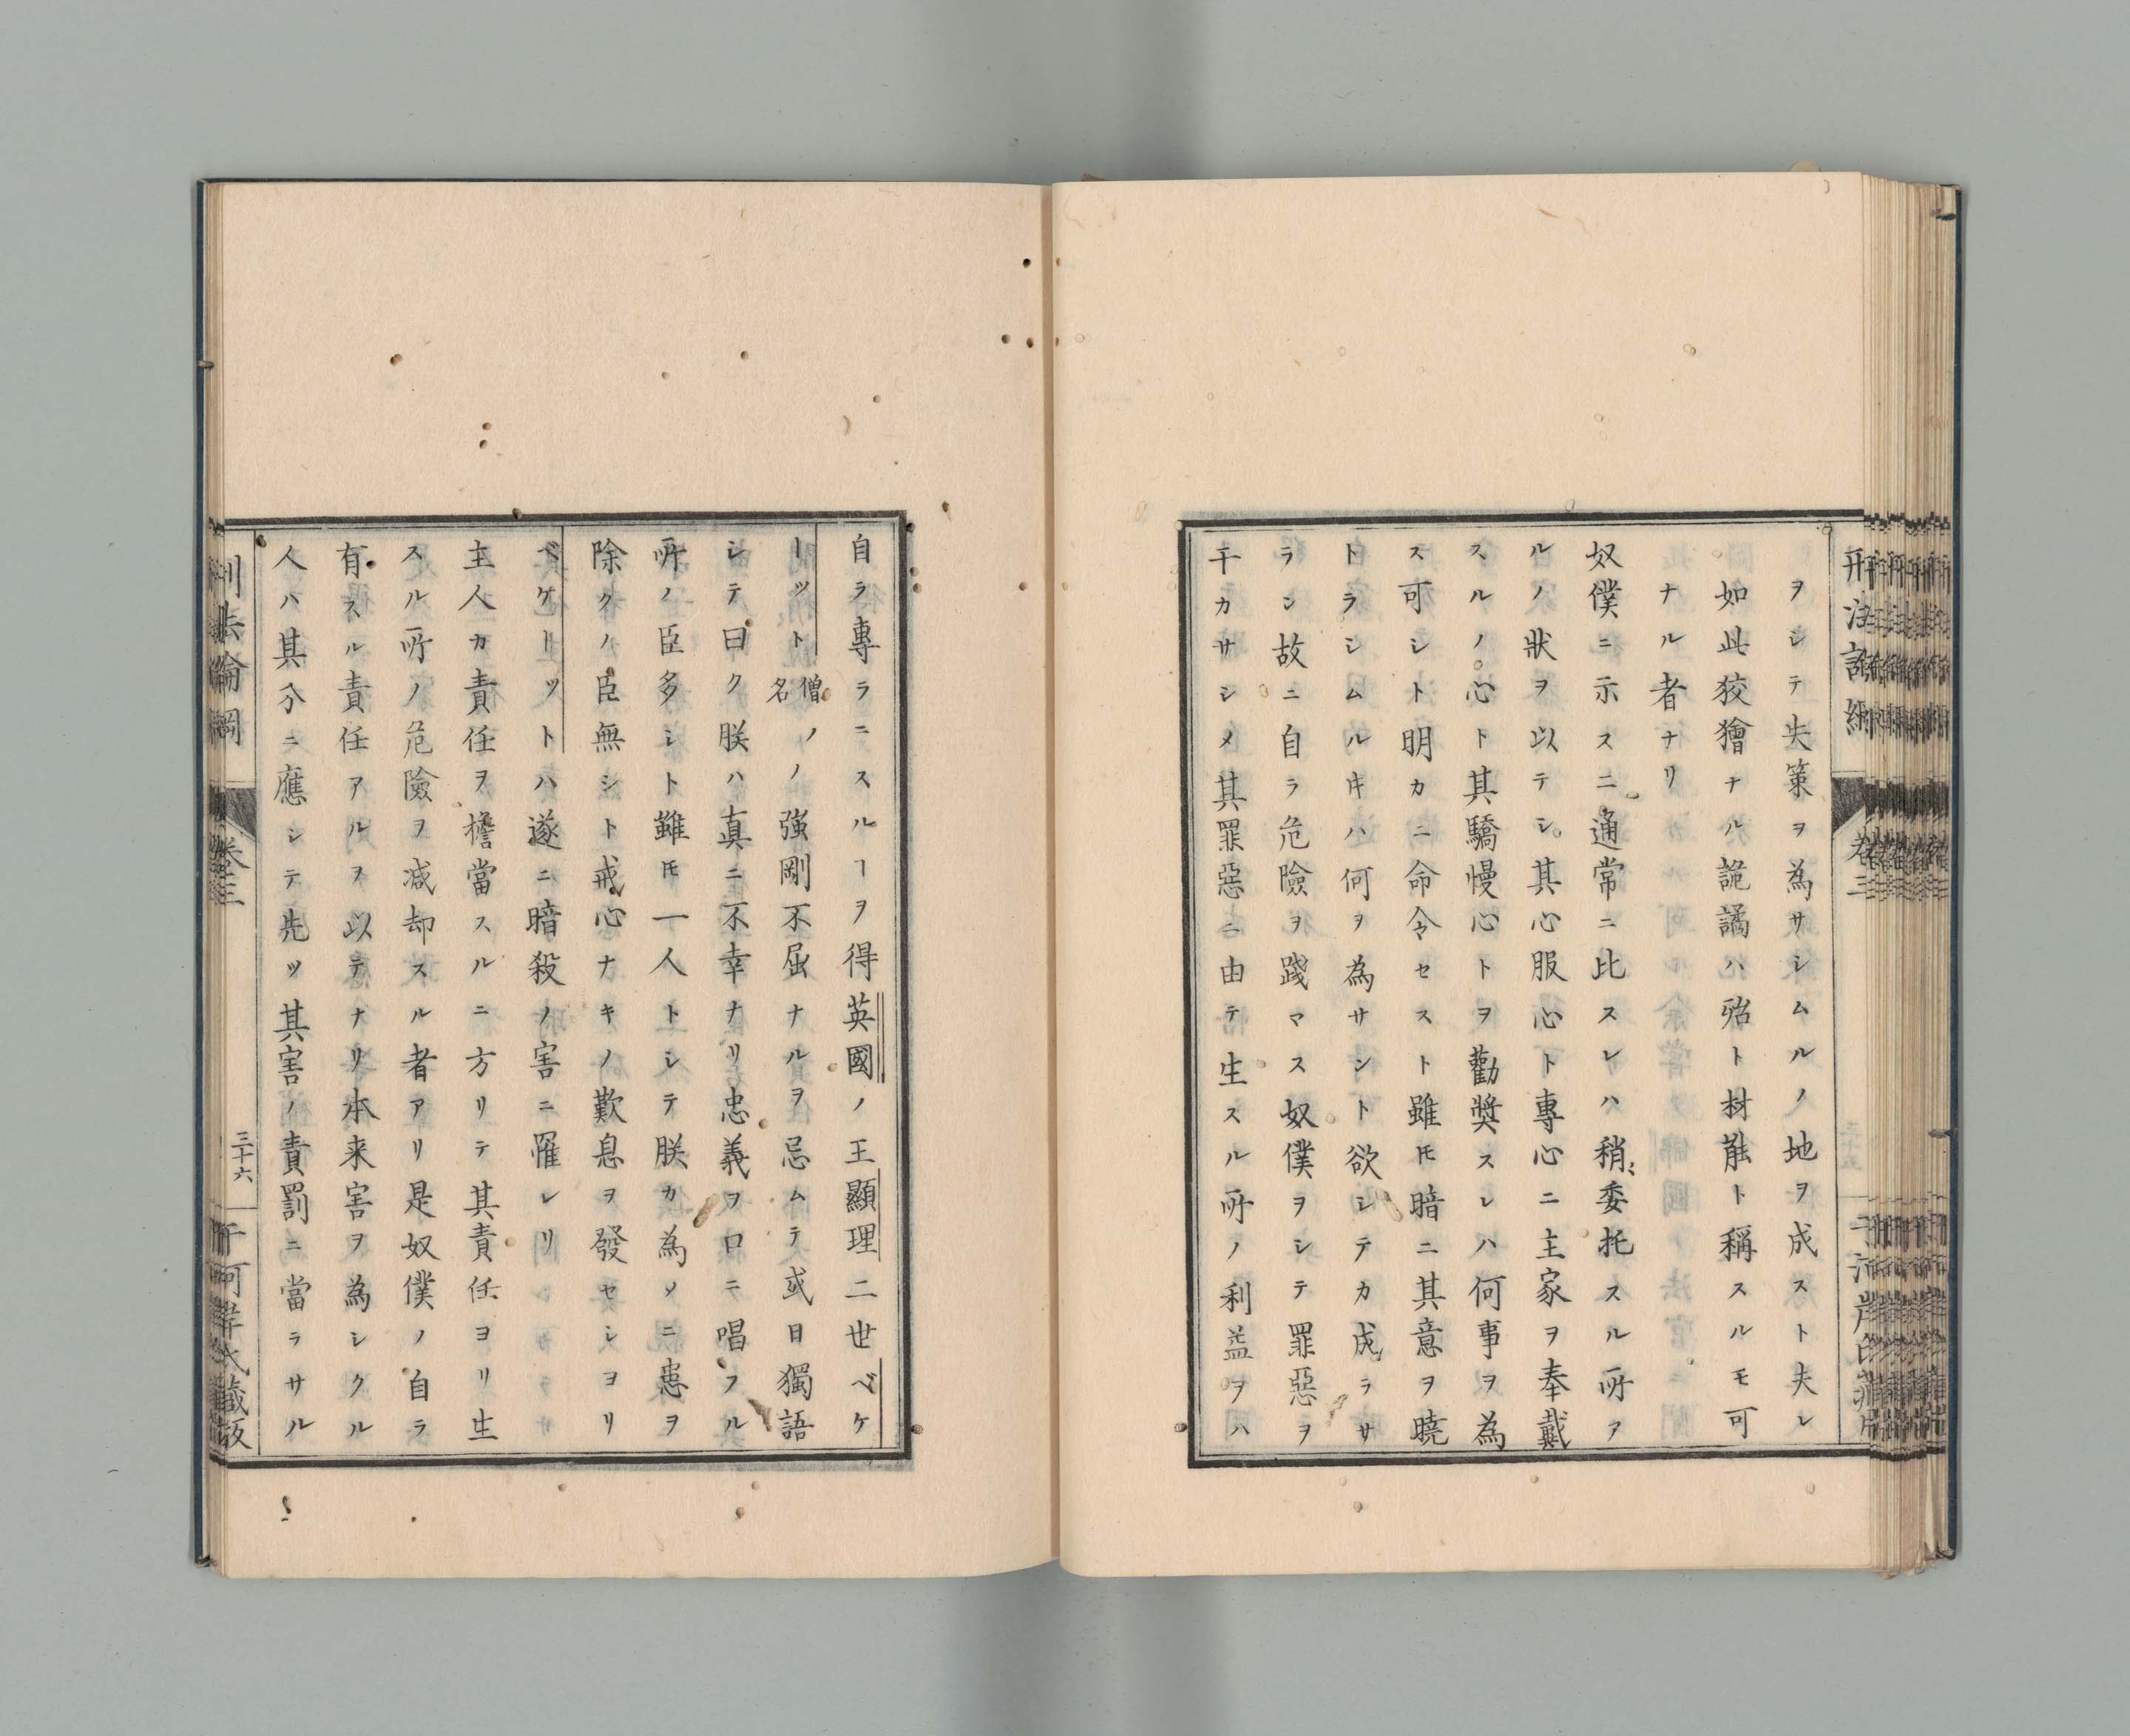 ヲシテ失策ヲ為サシムルノ地ヲ成スト夫レ
如此狡獪ナル詭譎ハ殆ト材能ト稱スルモ可
ナル者ナリ
奴僕ニ示スニ通常ニ比スレハ稍〻委托スル所ア
ルノ狀ヲ以テシ其心服心ト專心ニ主家ヲ奉戴
スルノ心ト其驕慢心トヲ勸奬スレハ何事ヲ為
ス可シト明カニ命令セスト雖𪜈暗ニ其意ヲ曉
トラシムル𪜀ハ何ヲ為サント欲シテカ成ラサ
ラン故ニ自ラ危險ヲ踐マス奴僕ヲシテ罪惡ヲ
干カサシメ其罪惡ニ由テ生スル所ノ利益ヲハ
自ラ專ラニスルヿヲ得英國ノ王顯理二世ベケ
ーット僧名ノノ強剛不屈ナルヲ忌ムテ或日獨語
シテ曰ク朕ハ真ニ不幸ナリ忠義ヲ口ニ唱フル
所ノ臣多シト雖𪜈一人トシテ朕カ為メニ患ヲ
除クノ臣無シト戒心ナキノ歎息ヲ發セシヨリ
ベケーットハ遂ニ暗殺ノ害ニ罹レリ
主人カ責任ヲ擔當スルニ方リテ其責任ヨリ生
スル所ノ危險ヲ减却スル者アリ是奴僕ノ自ラ
有スル責任アルヲ以テナリ本来害ヲ為シクル
人ハ其分ニ應シテ先ツ其害ノ責罰ニ當ラサル
刑法論綱
卷三
三十六